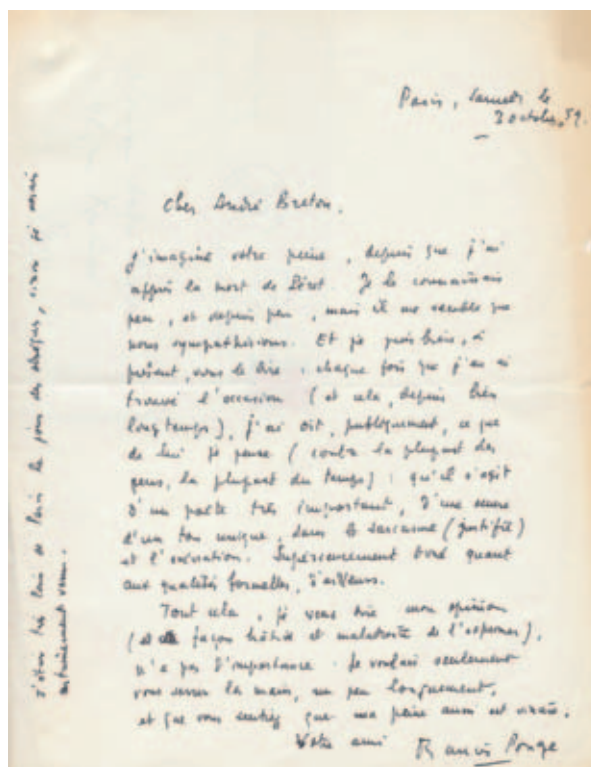 Paris, samedi le
3 octobre, 59.
Cher André Breton,
J'imagine votre peine, depuis que j'ai
appris la mort de Péret. Je le connaissais
peu, et depuis peu, mais il me semble que
nous sympathisions. Et je puis bien, à
présent, vous le dire : chaque fois que j'en ai
trouvé l'occasion (et cela, depuis très
longtemps), j'ai dit, publiquement, ce que
de lui je pense (contre la plupart des
gens, la plupart du temps) : qu'il s'agit
d'un poète très important, d'une œuvre
d'un ton unique, dans le sarcasme (justifié)
et l'exécration. Supérieurement doué quant
aux qualités formelles, d'ailleurs.
Tout cela, je veux dire mon opinion
(et façon hâtive et maladroite de l'exprimer),
n'a pas d'importance. Je voulais seulement
vous serrer la main, un peu longuement,
et que vous sentiez que ma peine aussi est vraie.
Votre ami Francis Ponge
J'étais très loin de Paris le jour des obsèques, sinon j'y serais
certainement venu.